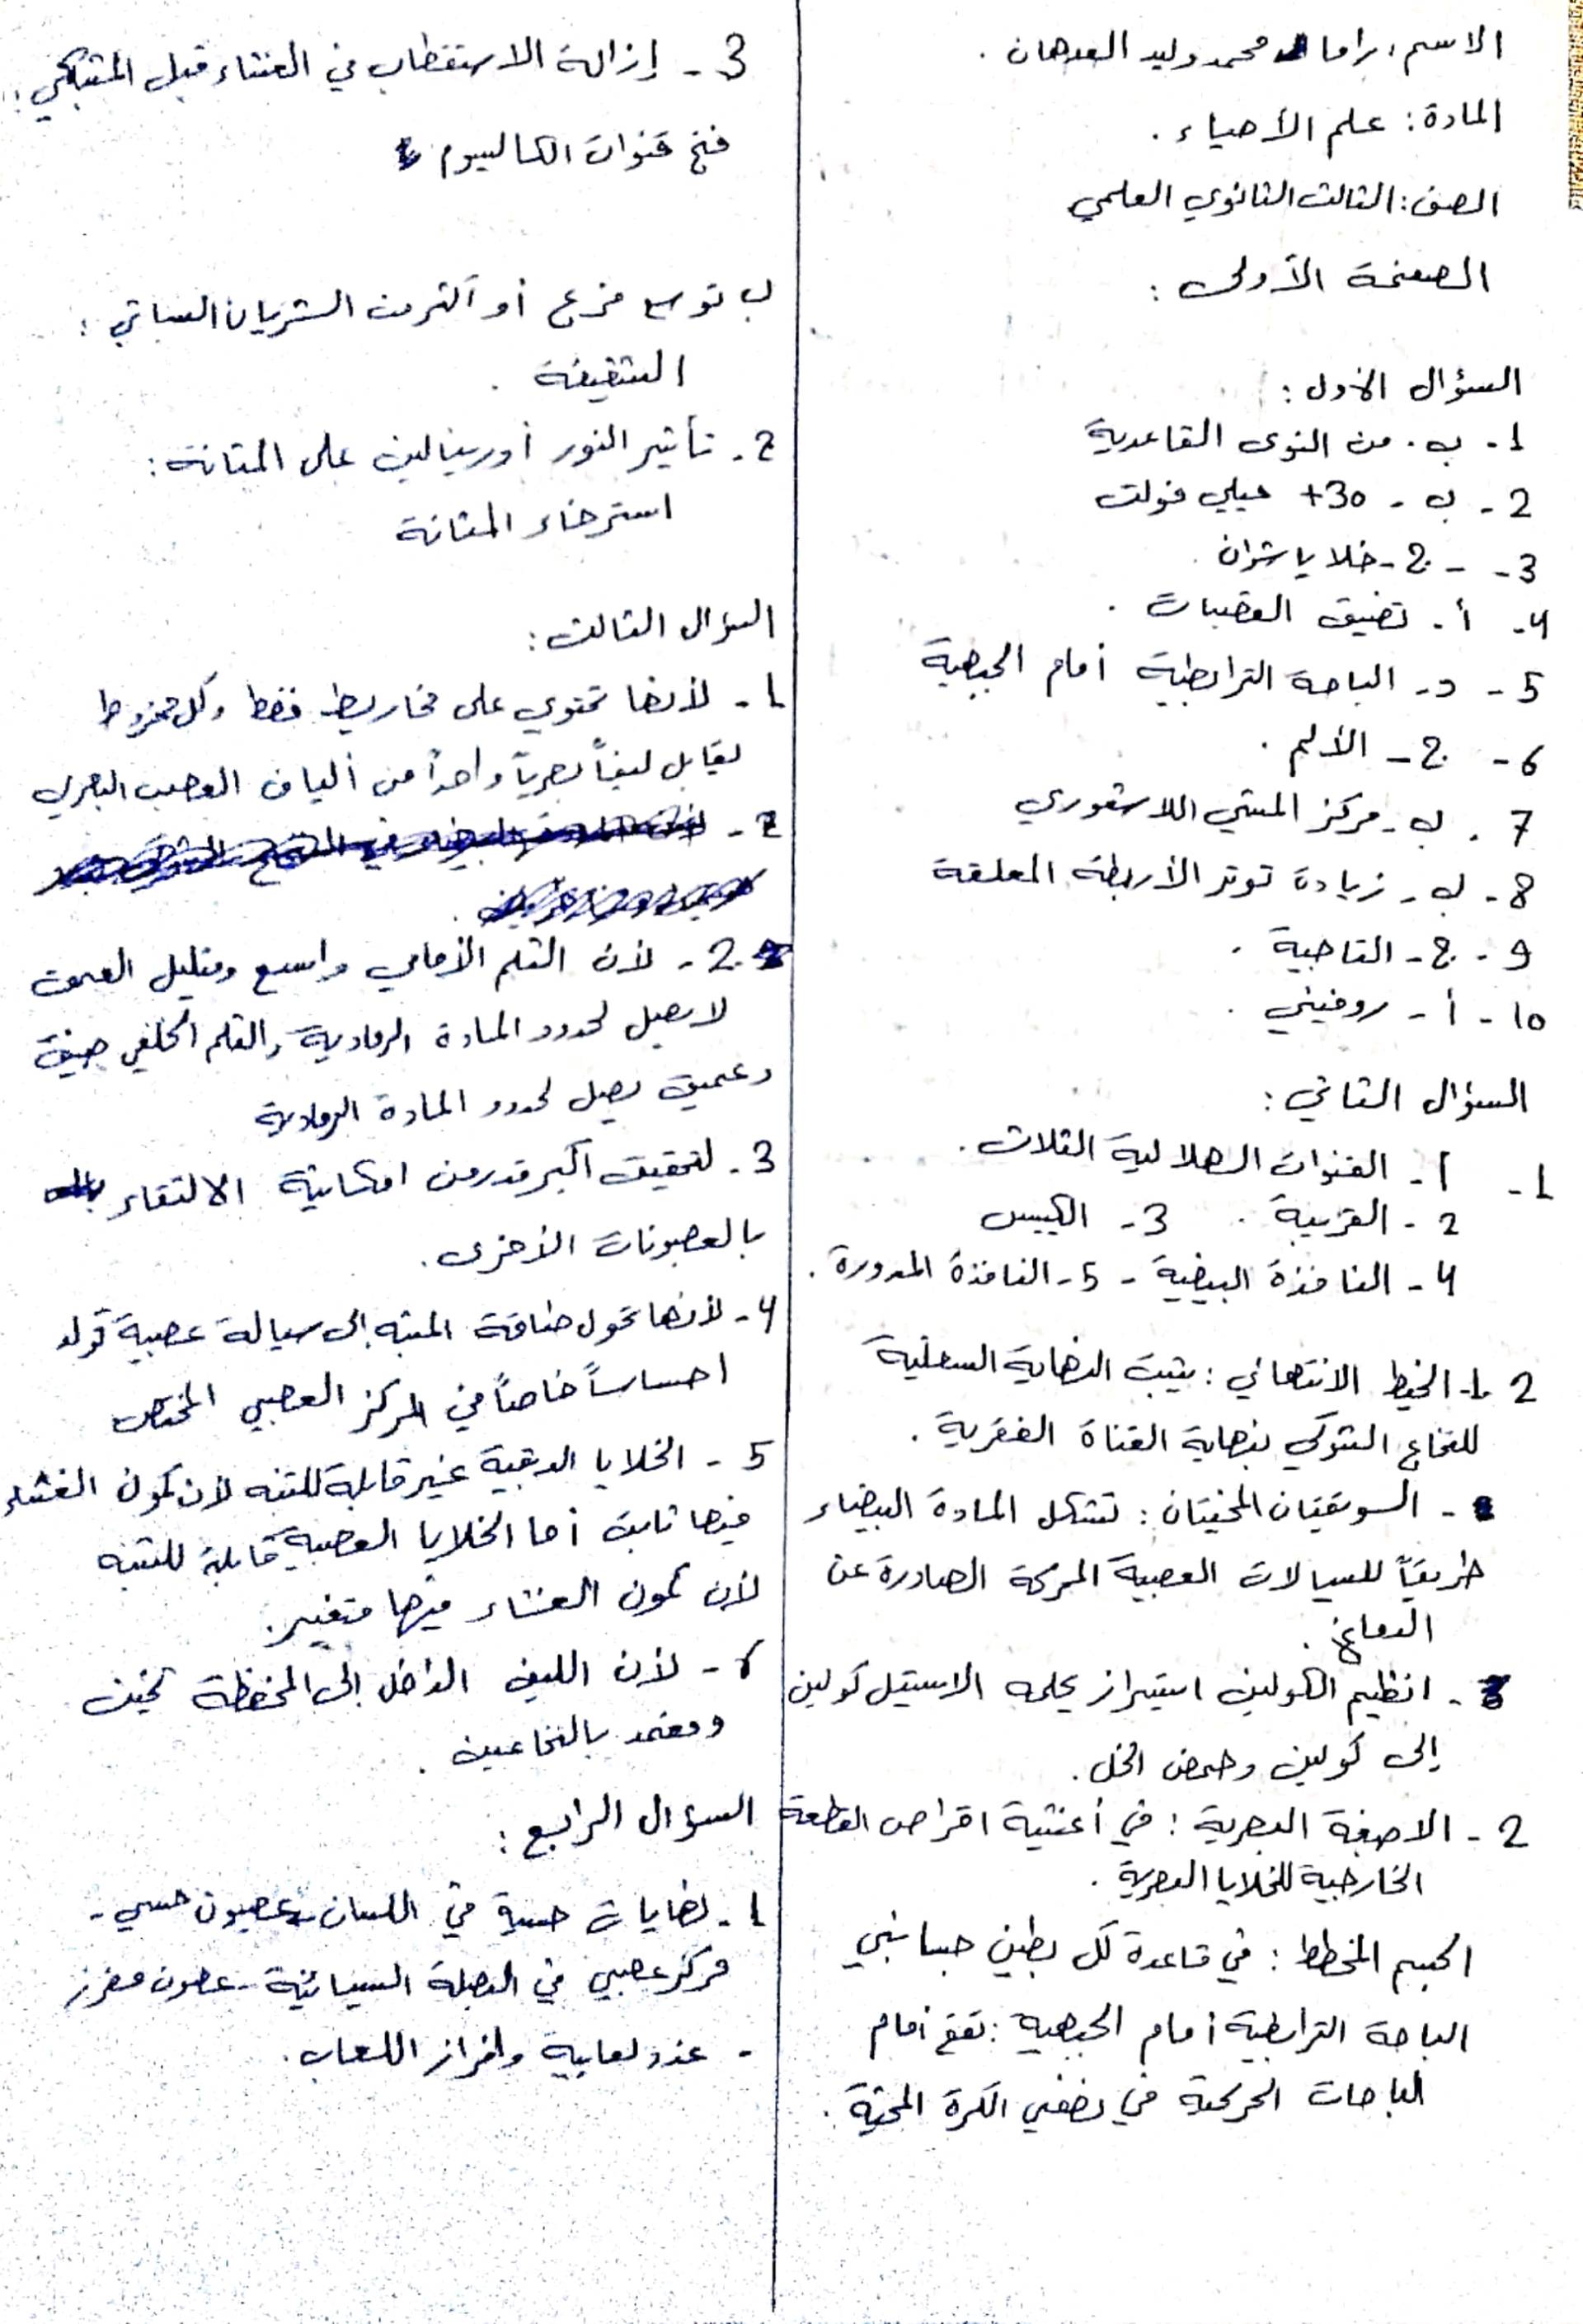 الاسم: راما محمد وليد العدهان.
المادة: علم الأحياء.
الصف: الثالث الثانوي العلمي
الصفحة الأولى:
السؤال الأول:
1- ب. من النوى القاعدية
2- ب - +30 ميلي فولت
3- - ج- خلايا شوان
4- أ. تضيق القصبات.
5- د- الباحة الترابطية أمام الجبهية
6- ج - الألم.
7. ب- مركز المشي اللاشعوري
8- ب- زيادة توتر الأربطة المعلقة
9- ج- القاحبة.
10- أ- روفيني.
السؤال الثاني:
1- 1- القنوات الهلالية الثلاث.
2- القريبة. 3- الكييس
4- النافذة البيضية - 5- النافذة المدورة.
2 1- الخيط الانتهائي: يثبت النهاية السفلية
للنخاع الشوكي بنهاية القناة الفقرية.
- السويقتان المخيتان: تشكل المادة البيضاء
طريقاً للسيالات العصبية المحركة الصادرة عن
الدماغ.
3- انظيم الكولين استيراز يحلمه الاستيل كولين
إلى كولين وحمض الخل.
2- الاصبغة البصرية: في أغشية اقراص القطعة
الخارجية للخلايا البصرية.
الجسم المخطط: في قاعدة كل بطين جبانبي
الباحة الترابطية أمام الجبهية: تقع أمام
الباحات الحركية في نصفي الكرة المخية.
3- إزالة الاستقطاب في الغشاء قبل المشبكي:
فتح قنوات الكالسيوم
ب توسع فرع أو أكثر من الشريان السباتي:
الشقيقة.
2- تأثير النور أدرينالين على المثانة:
استرخاء المثانة
السؤال الثالث:
1- لأنها تحتوي على مخاريط فقط وكل مخروط
يقابل ليفاً بصرياً واحداً من ألياف العصب البصري
2-
2- لأن الثلم الأمامي واسع وقليل العمق
لا يصل لحدود المادة الرمادية والثلم الخلفي ضيق
وعميق يصل لحدود المادة الرمادية
3- لتحقيق أكبر قدر من امكانية الالتقاء
بالعصبونات الأخرى.
4- لأنها تحول طاقة المنبه إلى سيالة عصبية تولد
احساساً خاصاً في المركز العصبي المختص
5- الخلايا الدبقية غير قابلة للتنبه لأن كمون الغشاء
فيها ثابت أما الخلايا العصبية قابلة للتنبه
لأن كمون الغشاء فيها متغير.
6- لأن الليف الداخل إلى المحفظة ثخين
ومغمد بالنخاعين.
السؤال الرابع:
1- نهايات حسية في اللسان - عصبون حسي -
مركز عصبي في البصلة السيسائية - عصبون مفرز
- غدد لعابية وافراز اللعاب.